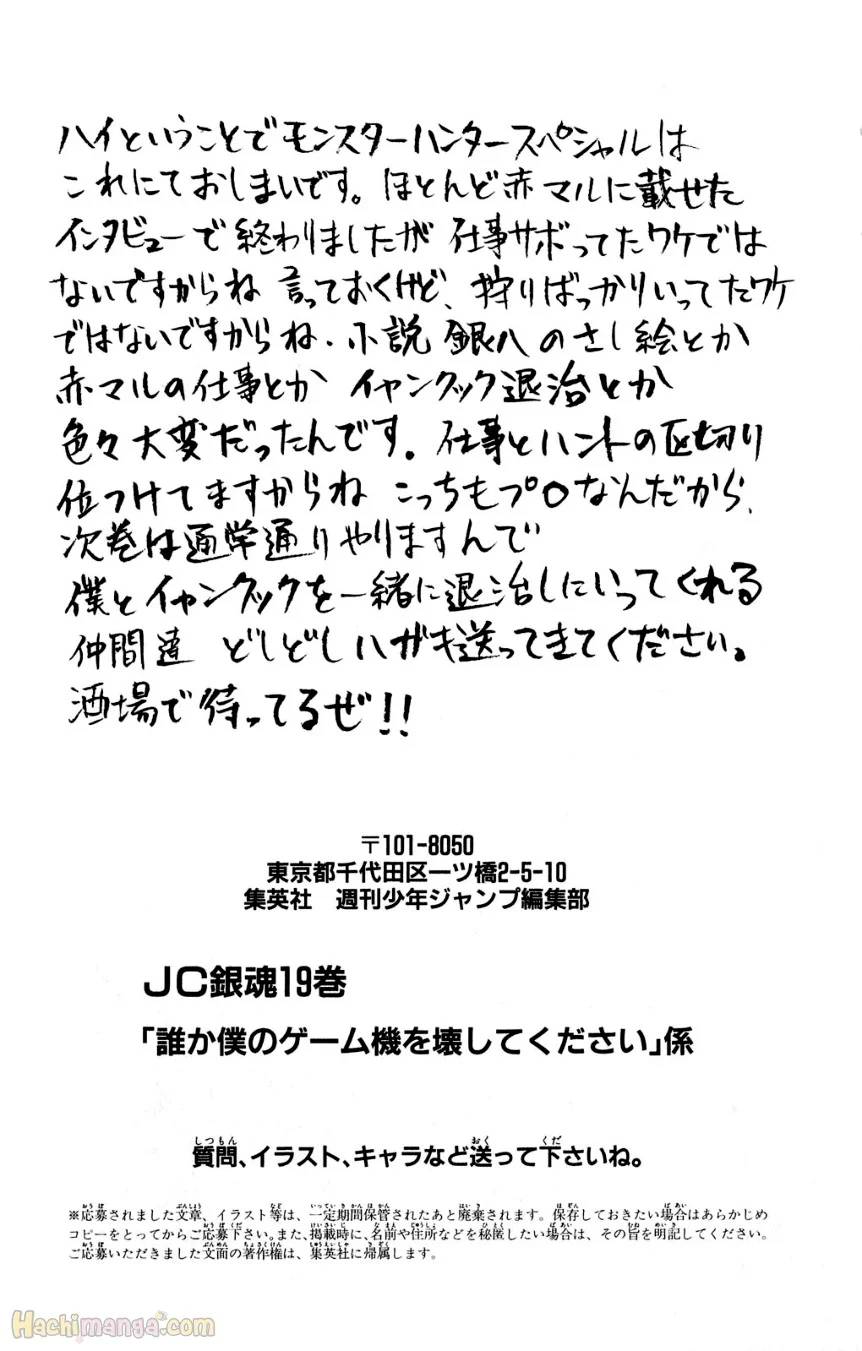 ハイということでモンスターハンタースペシャルは
これにておしまいです。ほとんど赤マルに載せた
インタビューで終わりましたが 仕事サボってたワケでは
ないですからね 言っておくけど、狩りばっかりいってたワケ
ではないですからね。小説 銀八 のさし絵とか
赤マルの仕事とか イャンクック退治とか
色々大変だったんです。仕事とハントの区切り
位つけてますからね こっちもプロなんだから、
次巻は通常通りやりますんで
僕とイャンクックを一緒に退治しにいってくれる
仲間達 どしどしハガキ送ってきてください。
酒場で待ってるぜ!!
〒101-8050
東京都千代田区一ツ橋2-5-10
集英社 週刊少年ジャンプ編集部
JC銀魂19巻
「誰か僕のゲーム機を壊してください」係
質問、イラスト、キャラなど送って下さいね。
※応募されました文章、イラスト等は、一定期間保管されたあと廃棄されます。保存しておきたい場合はあらかじめ
コピーをとってからご応募下さい。また、掲載時に、名前や住所などを秘匿したい場合は、その旨を明記してください。
ご応募いただきました文面の著作権は、集英社に帰属します。
Hachimanga.com